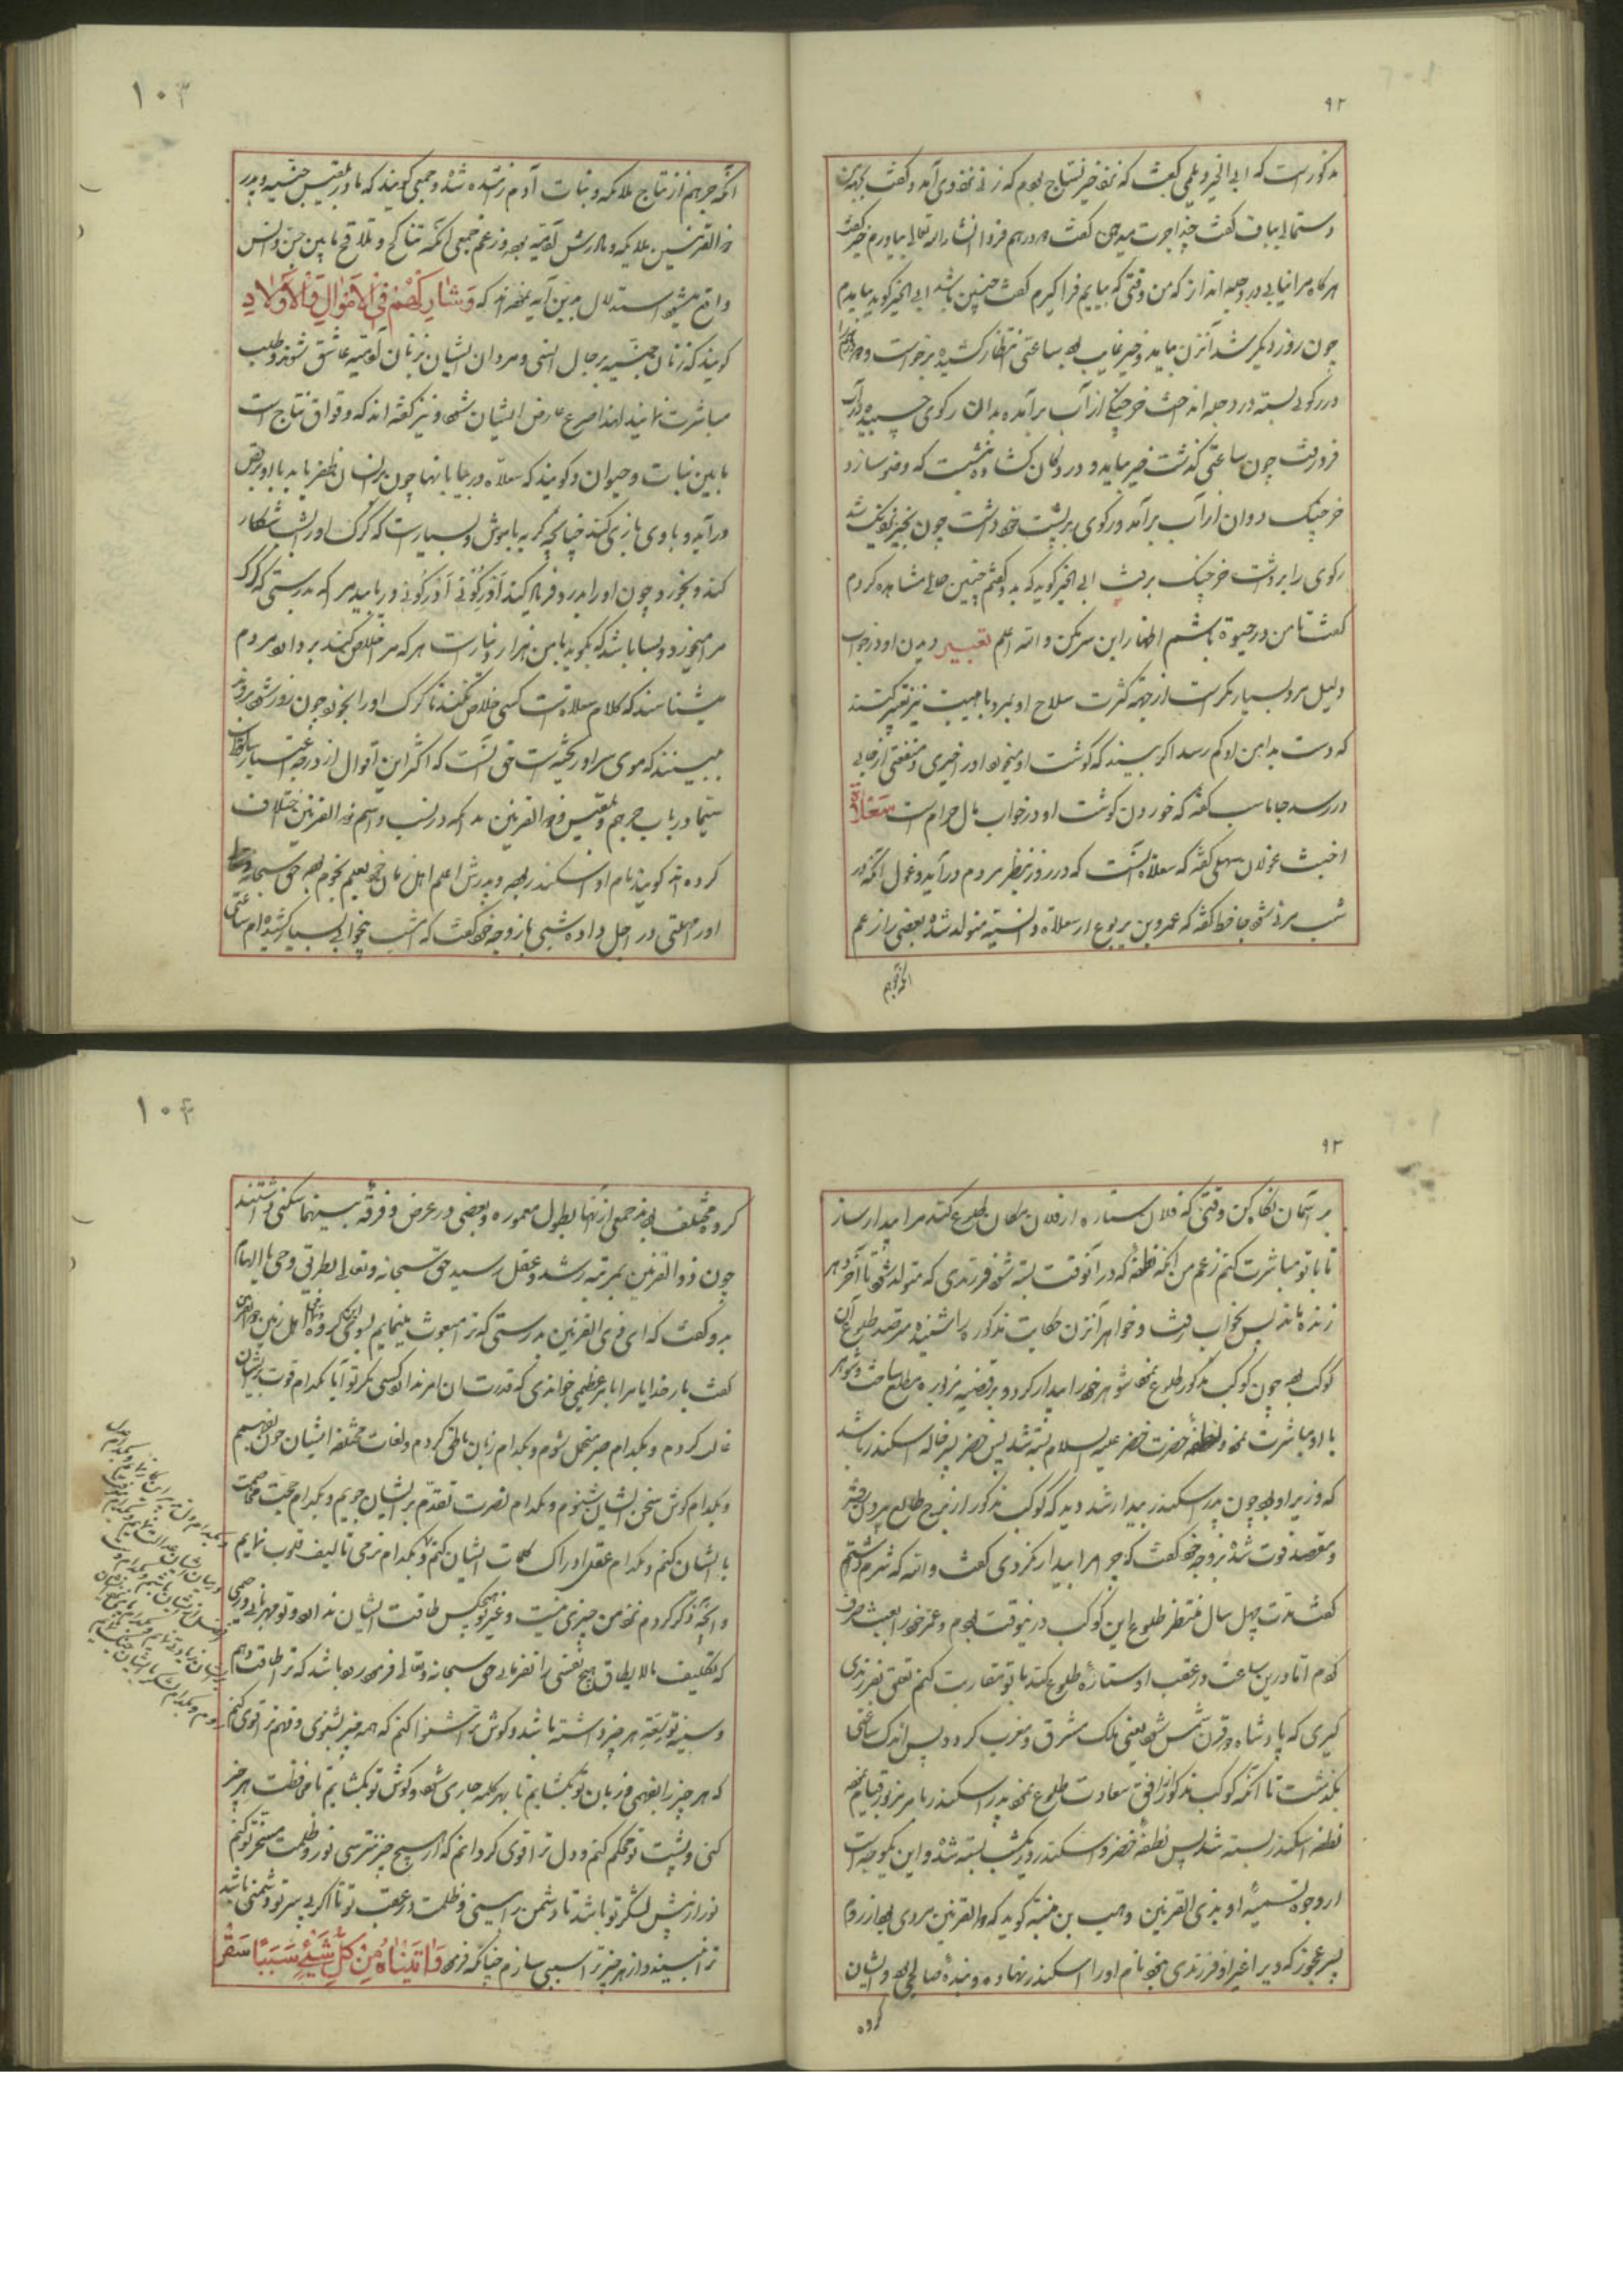 ۹۲
مذکور است که ابی الخیر دیلمی گفت که نزد خیر نساج بودم که زنی نزد وی آمد و گفت بجهة من
دستمالی بباف گفت چند اجرت میدهی گفت دو درهم فردا انشاء الله تعالی بیاورم خیر گفت
هرگاه مرا نیابی در دجله انداز که من وقتی که بیایم فرا گیرم گفت چنین باشد ابی الخیر گوید بیامدم
چون روز دیگر شد آنزن بیامد و خیر غایب بود ساعتی انتظار کشیده برخواست و
در رکوئی بسته در دجله انداخت خرچنگی از آب برآمده بدان رکوی چسبیده در آب
فرو رفت چون ساعتی گذشت خیر بیامد و در دکان گشاده نشست که وضو سازد
خرچنگ دوان از آب برآمد و رکوی بر پشت خود داشت چون بخیر نزدیک شد
رکوی را برداشت خرچنگ برفت ابی الخیر گوید که بدو گفتم چنین حالی مشاهده کردم
گفت تا من در حیوة باشم اظهار این سر مکن و الله اعلم تعبیر دیدن او در خواب
دلیل مرد بسیار مکر است از جهة کثرت سلاح او بمرد با هیبت نیز تعبیر کنند
که دست بدامن او کم رسد اگر بیند که گوشت او میخورد او را خیری و منفعتی از جایی
در رسد جاماسب گفته که خوردن گوشت او در خواب مال حرام است سعلاة
اخبث غولان سهیلی گفته که سعلاة آنست که در روز بنظر مردم درآید و غول آنکه در
شب مرئی شود جاحظ گفته که عمرو بن یربوع از سعلاة و انسیه متولد شده بعضی را زعم
آنکه جرهم
۱۰۳
آنکه جرهم از نتاج ملائکه و بنات آدم زائیده شده و جمعی گویند که مادر بلقیس جنیه و پدر
ذو القرنین ملائکه و مادرش آدمیه بوده و زعم جمعی آنکه تناکح و تلاقح مابین جن و انس
واقع میشود استدلال بدین آیه نموده اند که وَشَارِكْهُمْ فِي الْأَمْوَالِ وَالْأَوْلَادِ
گویند که زنان جنیه برجال انسی و مردان ایشان بزنان آدمیه عاشق شوند و طلب
مباشرت نمایند لهذا صرع عارض ایشان شود و نیز گفته اند که وقواق نتاج است
مابین نبات و حیوان و گویند که سعلاه در بیابانها چون بر انسان ظفر یابد با او برقص
درآید و با وی بازی کند چنانچه گربه با موش و بسیار است که گرگ او را بشب شکار
کند و بخورد چون او را بدرد فریاد کند اَدْرِکُونی اَدْرِکُونی دریابید مرا که بدرستی که گرگ
مرا میخورد و بسا باشد که بگوید با من هزار دینار است هرکه مرا خلاص کند بردارد مردم
میشناسند که کلام سعلاة است کسی خلاص نکند تا گرگ او را بخورد چون روز شود
ببینند که موی سر او ریخته است حق آنست که اکثر این اقوال از درجه اعتبار ساقط است
سیما در باب جرهم و بلقیس و ذو القرنین بدانکه در نسب و اسم ذو القرنین اختلاف
کرده اند گویند نام او اسکندر بوده و پدرش اعلم اهل زمان خود بعلم نجوم بوده حق سبحانه و تعالی
او را مهلتی در اجل داده شبی با زوجه خود گفت که امشب بیخوابی بسیار کشیده ام ساعتی
۹۳
بر آسمان نگاه کن وقتی که فلان ستاره از فلان مکان طلوع کند مرا بیدار ساز
تا با تو مباشرت کنم زعم من آنکه نطفه که در آنوقت بسته شود فرزندی که متولد شود تا آخر دهر
زنده ماند پس بخواب رفت و خواهر آنزن حکایت مذکوره را شنیده مترصد طلوع آن
کوکب بوده چون کوکب مذکور طلوع نمود شوهر خود را بیدار کرد و بر قضیه مزبوره مطلع ساخت و شوهر
با او مباشرت نمود و نطفه حضرت خضر علیه السلام بسته شد پس خضر پسر خاله اسکندر باشد
که وزیر او بود چون پدر اسکندر بیدار شد دید که کوکب مذکور از برج طالع بیرون رفته
و مقصد فوت شده بزوجه خود گفت که چرا مرا بیدار نکردی گفت والله که شرم داشتم
گفت مدت چهل سال منتظر طلوع این کوکب درینوقت بودم و عمر خود را بعبث صرف
نمودم اما درین ساعت در عقب او ستاره طلوع کند با تو مقاربت کنم تعلق بفرزندی
گیری که پادشاه دو قرن شمس شود یعنی ملک مشرق و مغرب گردد پس اندک ساعتی
نگذشت تا آنکه کوکب مذکور از افق سعادت طلوع نمود پدر اسکندر بامر مزبور قیام نمود
نطفه اسکندر بسته شد پس نطفه خضر و اسکندر در یک شب بسته شده و این یکوجه است
از وجوه تسمیه او بذی القرنین وهب بن منبه گوید که ذو القرنین مردی بود از روم
پسر عجوز که ویرا غیر او فرزندی نبود نام او را اسکندر نهاده و بنده صالحی بود و ایشان
گروه
۱۰۴
گروه مختلف بودند جمعی از آنها بطول معموره و بعضی در عرض و فرقه بینهما سکنی داشتند
چون ذو القرنین بمرتبه رشد و عقل رسید حق سبحانه و تعالی بطریق وحی یا الهام
بدو گفت که ای ذی القرنین بدرستی که ترا مبعوث مینمایم بسوی این گروه
گفت بار خدایا مرا بامر عظیمی خواندی که قدرت آن امر ندارد کسی مگر تو آیا بکدام قوت بر ایشان
غالب گردم و بکدام صبر متحمل شوم و بکدام زبان ناطق گردم و لغات مختلفه ایشان چون بفهمم
و بکدام گوش سخن ایشان شنوم و بکدام نصرت تقدم بر ایشان جویم و بکدام حجت مخاصمت
با ایشان کنم و بکدام عقل ادراک کلمات ایشان کنم و بکدام نرمی تالیف قلوب نمایم
و آنچه ذکر کردم نزد من چیزی نیست و غیر تو هیچکس طاقت ایشان ندارد و تو مهربانی و رحیمی
که تکلیف مالایطاق هیچ نفسی را نفرمایی حق سبحانه و تعالی فرموده باشد که ترا طاقت دهم
و سینه تو بقوت هر چیز داشته باشد و گوش ترا شنوا کنم که همه چیز بشنوی و فهم ترا قوی کنم
که هر چیز را بفهمی و زبان تو بگشایم تا بهر کلمه جاری شود و گوش تو بگشایم تا محافظت هر چیز
کنی و پشت تو محکم کنم و دل ترا قوی گردانم که از هیچ چیز نترسی نور و ظلمت مسخر تو کنم
نور از پیش لشکر تو باشد تا دشمن را ببینی و ظلمت در عقب تو تا اگر در پی سر تو دشمنی باشد
ترا نبیند و از هر چیز ترا سببی سازم چنانکه فرمود وَاٰتَيْنَاهُ مِنْ كُلِّ شَيْءٍ سَبَبًا